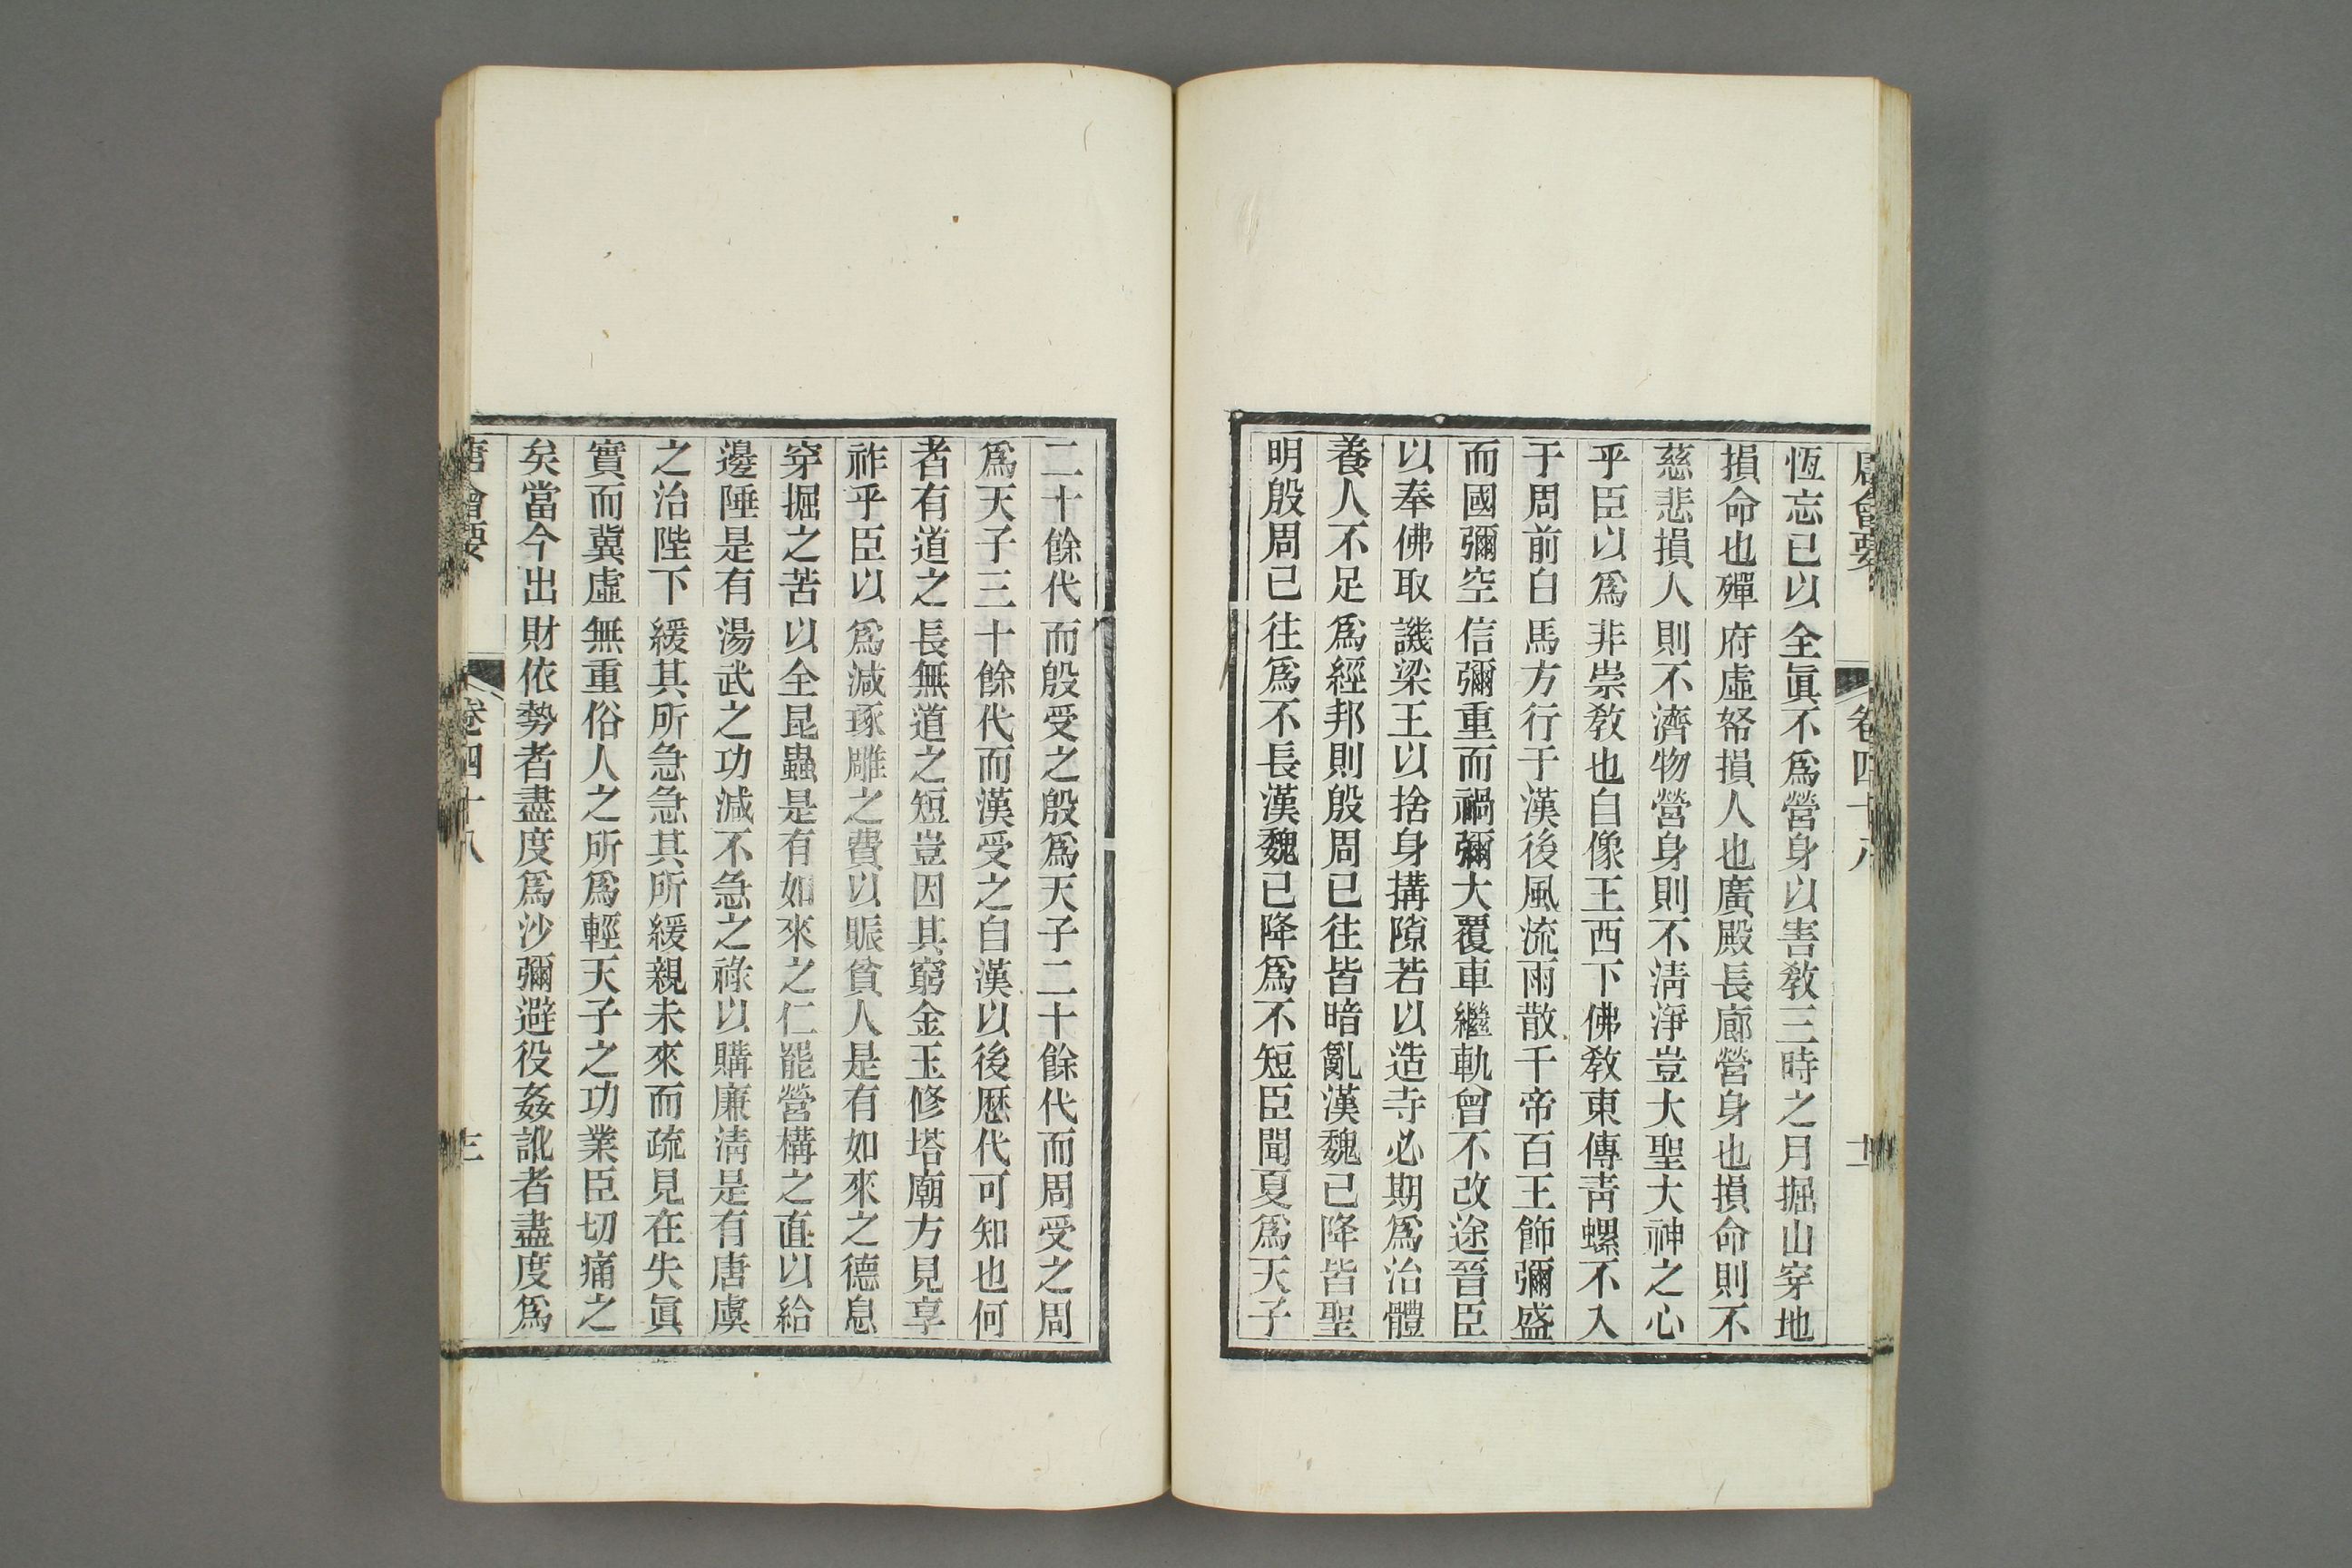 唐會要 卷四十八 十二
恆忘已以全眞不爲營身以害敎三時之月掘山穿地
損命也殫府虛帑損人也廣殿長廊營身也損命則不
慈悲損人則不濟物營身則不淸淨豈大聖大神之心
乎臣以爲非崇敎也自像王西下佛敎東傳靑螺不入
于周前白馬方行于漢後風流雨散千帝百王飾彌盛
而國彌空信彌重而禍彌大覆車繼軌曾不改途晉臣
以奉佛取譏梁王以捨身搆隙若以造寺必期爲治體
養人不足爲經邦則殷周已往皆暗亂漢魏已降皆聖
明殷周已往爲不長漢魏已降爲不短臣聞夏爲天子
二十餘代而殷受之殷爲天子二十餘代而周受之周
爲天子三十餘代而漢受之自漢以後歷代可知也何
者有道之長無道之短豈因其窮金玉修塔廟方見享
祚乎臣以爲減琢雕之費以賑貧人是有如來之德息
穿掘之苦以全昆蟲是有如來之仁罷營構之直以給
邊陲是有湯武之功減不急之祿以購廉淸是有唐虞
之治陛下緩其所急急其所緩親未來而疏見在失眞
實而冀虛無重俗人之所爲輕天子之功業臣切痛之
矣當今出財依勢者盡度爲沙彌避役姦訛者盡度爲
唐會要 卷四十八 三